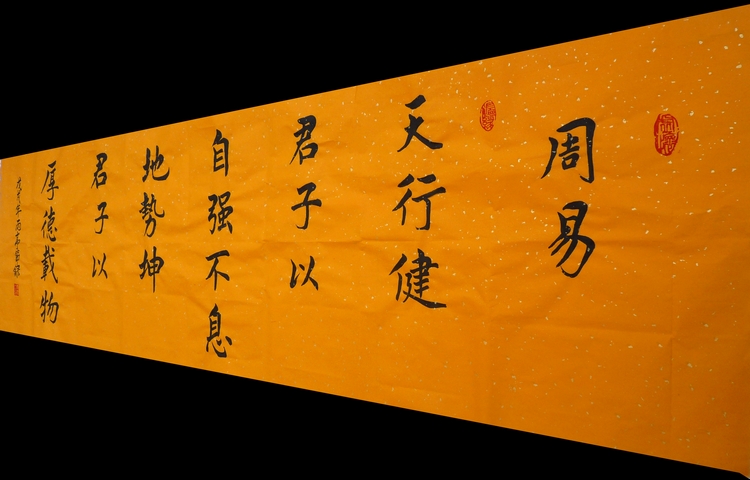 周易
天行健
君子以
自强不息
地勢坤
君子以
厚德載物